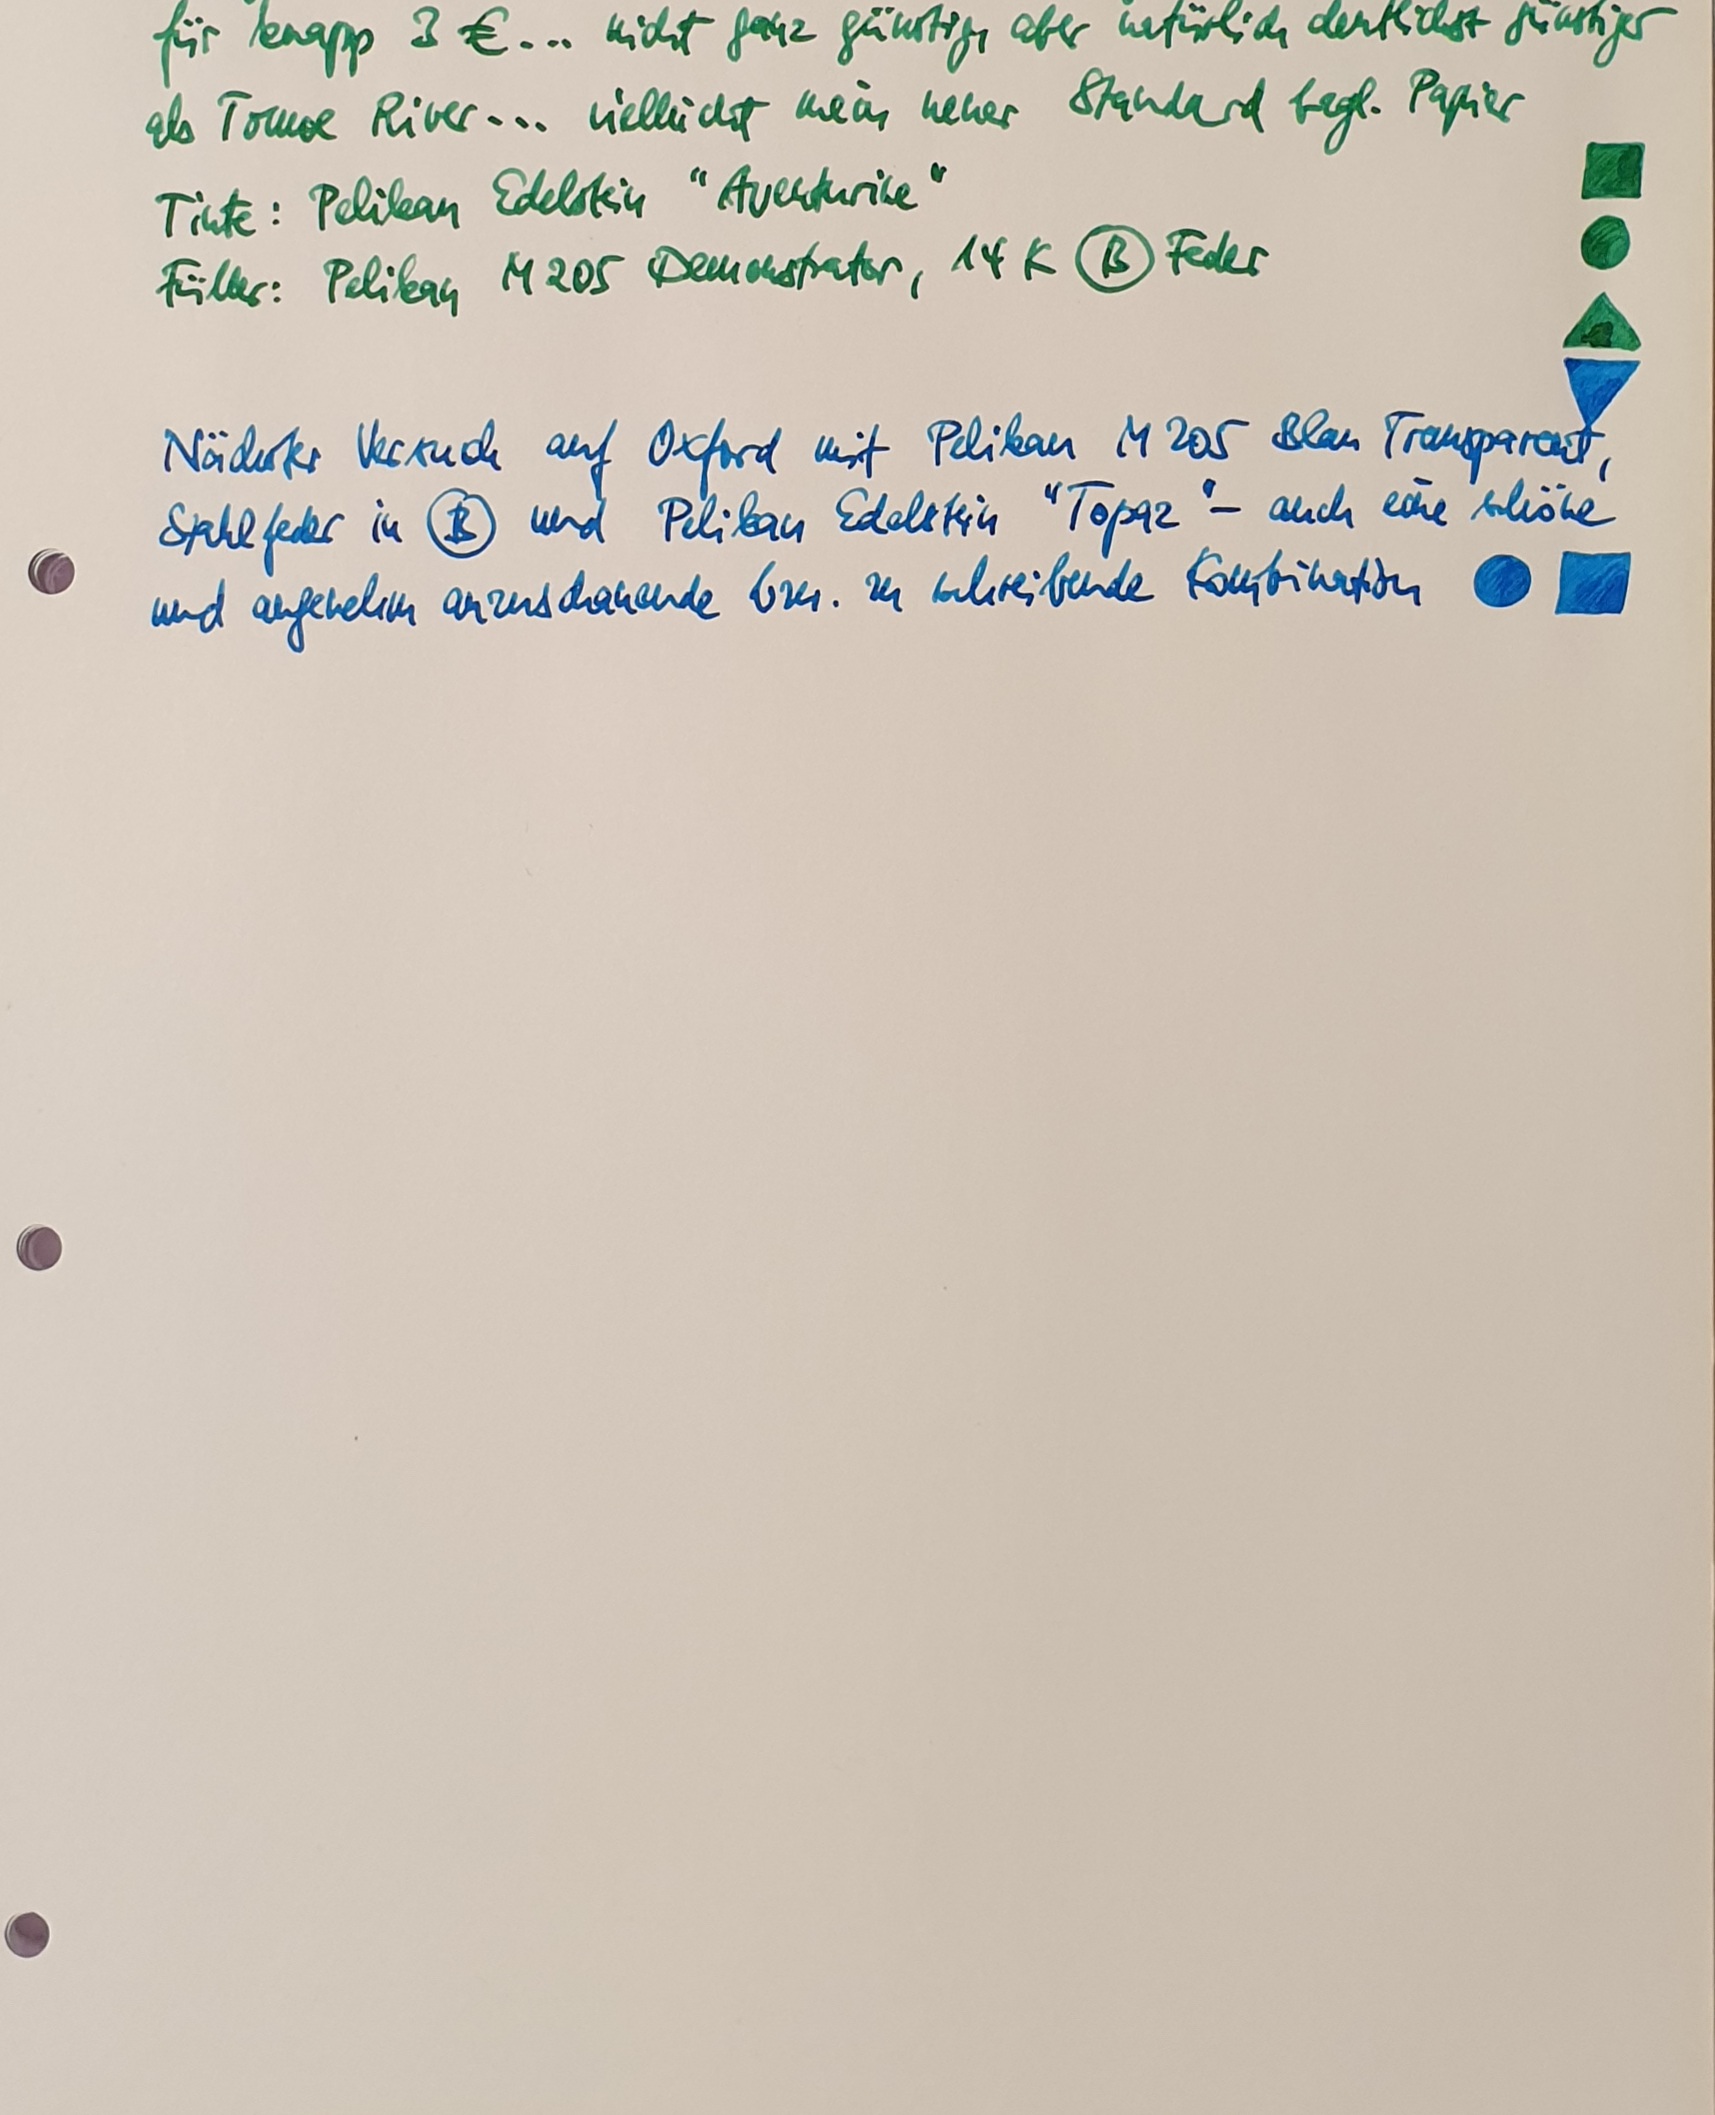 für knapp 3 €... nicht ganz günstig, aber natürlich deutlichst günstiger
als Tomoe River... vielleicht mein neuer Standard bzgl. Papier
Tinte: Pelikan Edelstein "Aventurine"
Füller: Pelikan M205 Demonstrator, 14 K B Feder
Nächster Versuch auf Oxford mit Pelikan M205 Blau Transparent,
Stahlfeder in B und Pelikan Edelstein "Topaz" - auch eine schöne
und angenehm anzuschauende bzw. zu schreibende Kombination